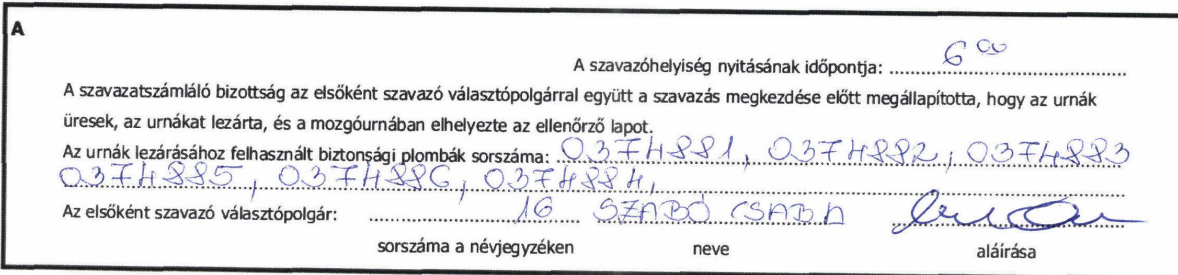 A
A szavazóhelyiség nyitásának időpontja: 6 00
A szavazatszámláló bizottság az elsőként szavazó választópolgárral együtt a szavazás megkezdése előtt megállapította, hogy az urnák
üresek, az urnákat lezárta, és a mozgóurnában elhelyezte az ellenőrző lapot.
Az urnák lezárásához felhasznált biztonsági plombák sorszáma: 0374881, 0374882, 0374883
0374885, 0374886, 0374884,
Az elsőként szavazó választópolgár: 16 SZABÓ CSABA
sorszáma a névjegyzéken neve aláírása